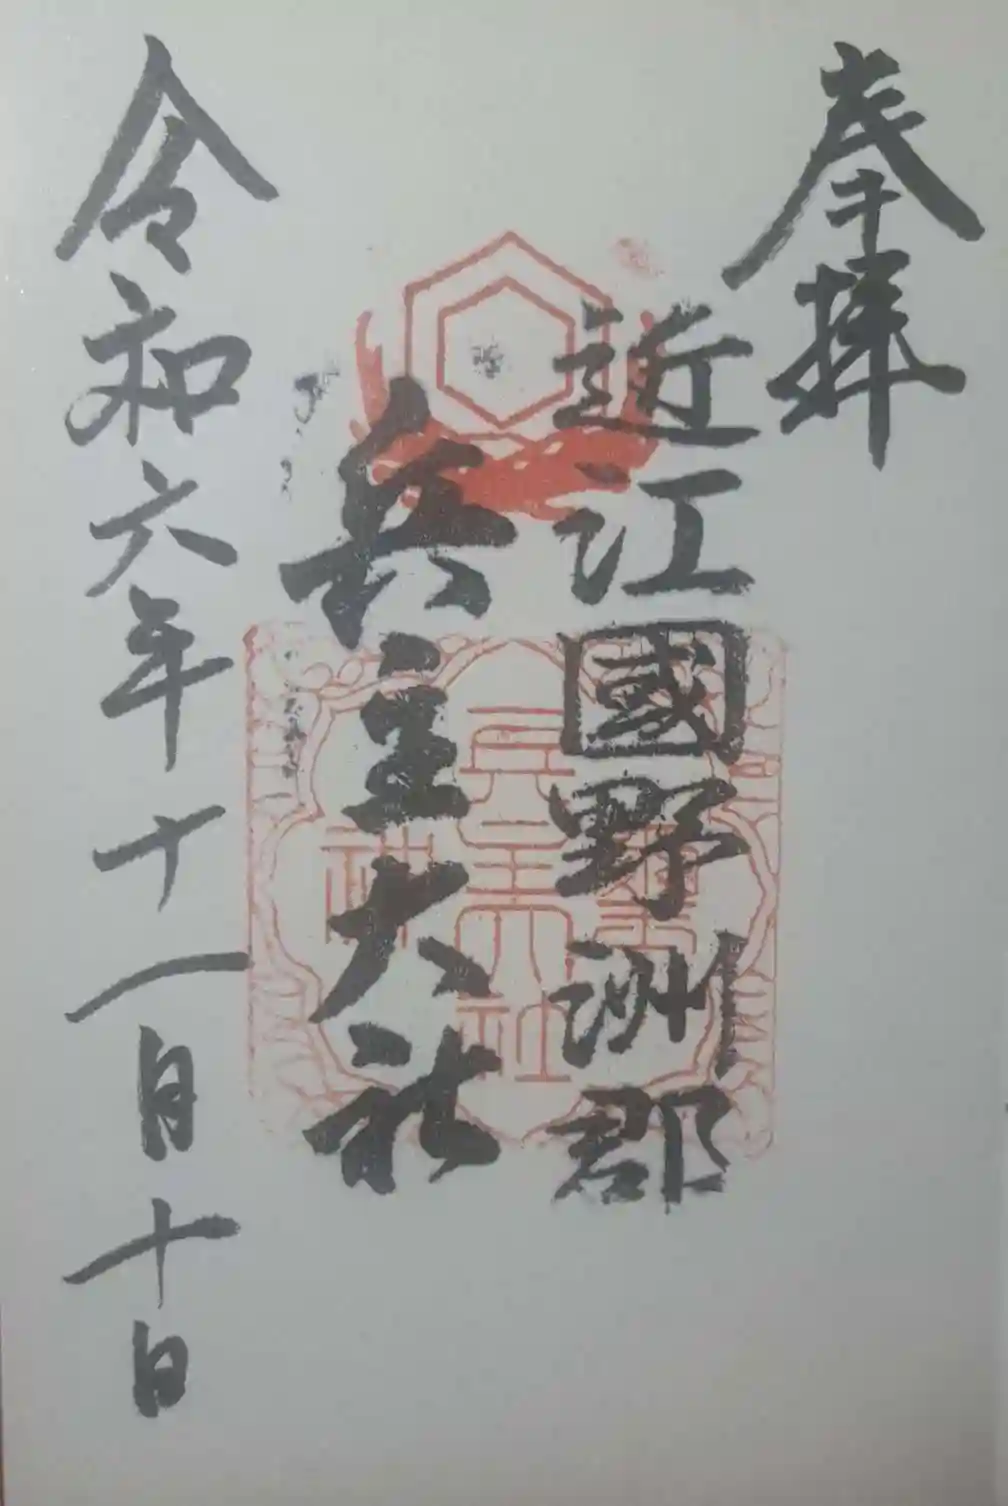 奉拝
近江國野洲郡
兵主大社
令和六年十一月十日
兵主大社